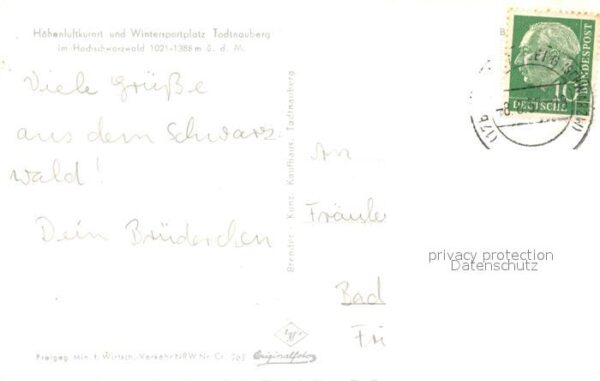 Höhenluftkurort und Wintersportplatz Todtnauberg
im Hochschwarzwald 1021-1388 m ü. d. M.
Viele Grüße
aus dem Schwarz-
wald!
Dein Brüderchen
Brender Kunz, Kaufhaus, Todtnauberg
Freigeg. Min. f. Wirtsch. Verkehr NRW Nr. Cr.
Originalfoto
An
Fräule
Bad
Fri
10
DEUTSCHE
BUNDESPOST
(17b
privacy protection
Datenschutz